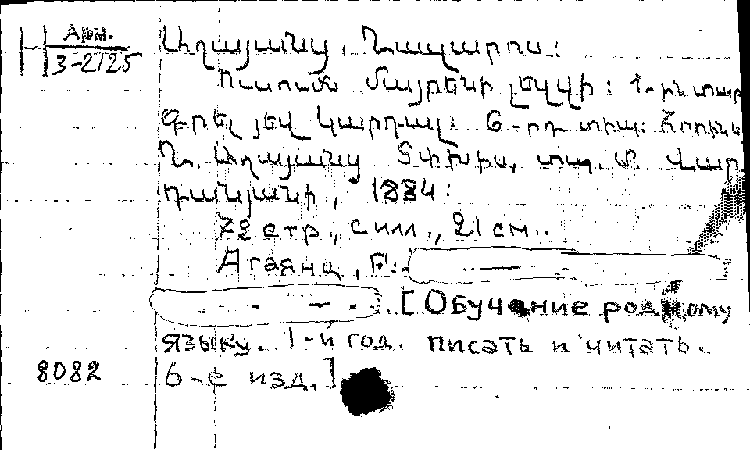 Арм.
3-2125
Աղայանց, Ղազարոս:
Ուսումն մայրենի լեզվի: 1-ին տար
Գրել յեվ կարդալ: 6-րդ տիպ:
Ղ. Աղայանց Տփխիս, տպ. Մ. Վար
դանյանի, 1884:
72 стр., с илл., 21 см.
Агаянц,
[Обучание родному
языку. 1-й год. писать и читать.
8082 6-е изд.]